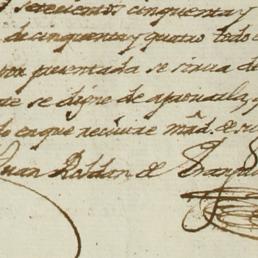 setecientos cinquenta y
de cinquenta y quatro todo
presentada se sirua de
se digne de aprouarla, y
en que reciuire
Juan Roldan de